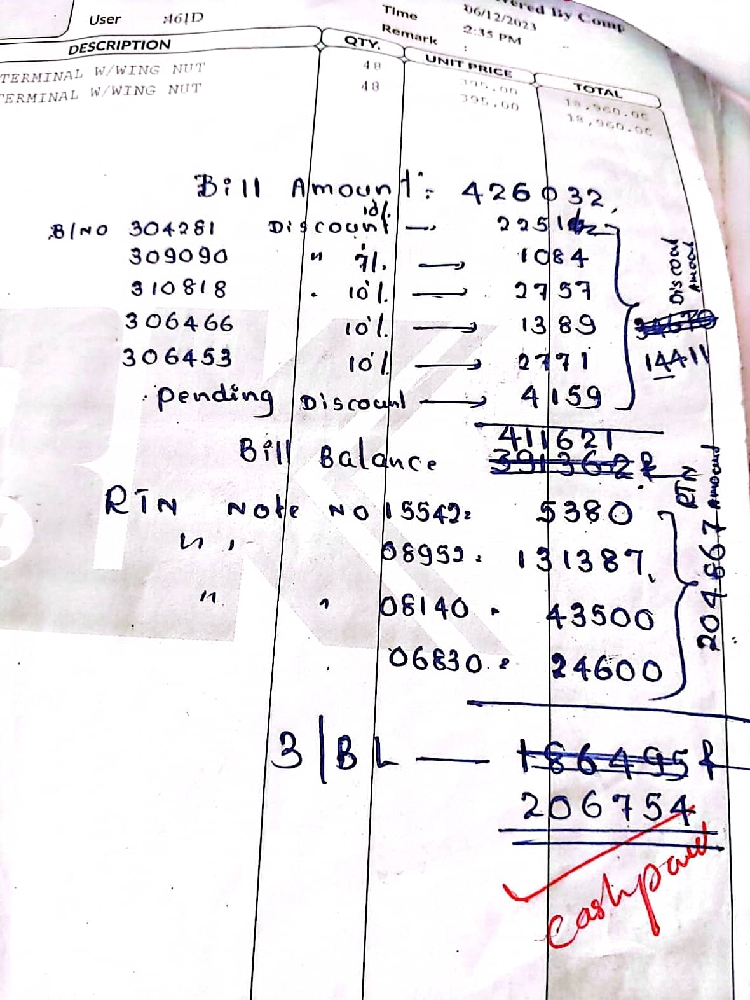 ered By Comp
User :461D
Time 06/12/2023
Remark 2:35 PM
:
DESCRIPTION QTY. UNIT PRICE TOTAL
TERMINAL W/WING NUT 48 395.00 18,960.00
TERMINAL W/WING NUT 48 395.00 18,960.00
Bill Amount: 426032
B/NO 304281 Discount 10% → 2251
309090 " 7% → 1084
310818 " 10% → 2757
306466 10% → 1389
306453 10% → 2771
Pending Discount → 4159
Discount Amount
14411
411621
Bill Balance 391362
RTN Note NO 15542: 5380
" " 08952: 131387
" " 08140 " 43500
06830 : 24600
204867 RTN Amount
3/BL — 186495
206754
cash paid